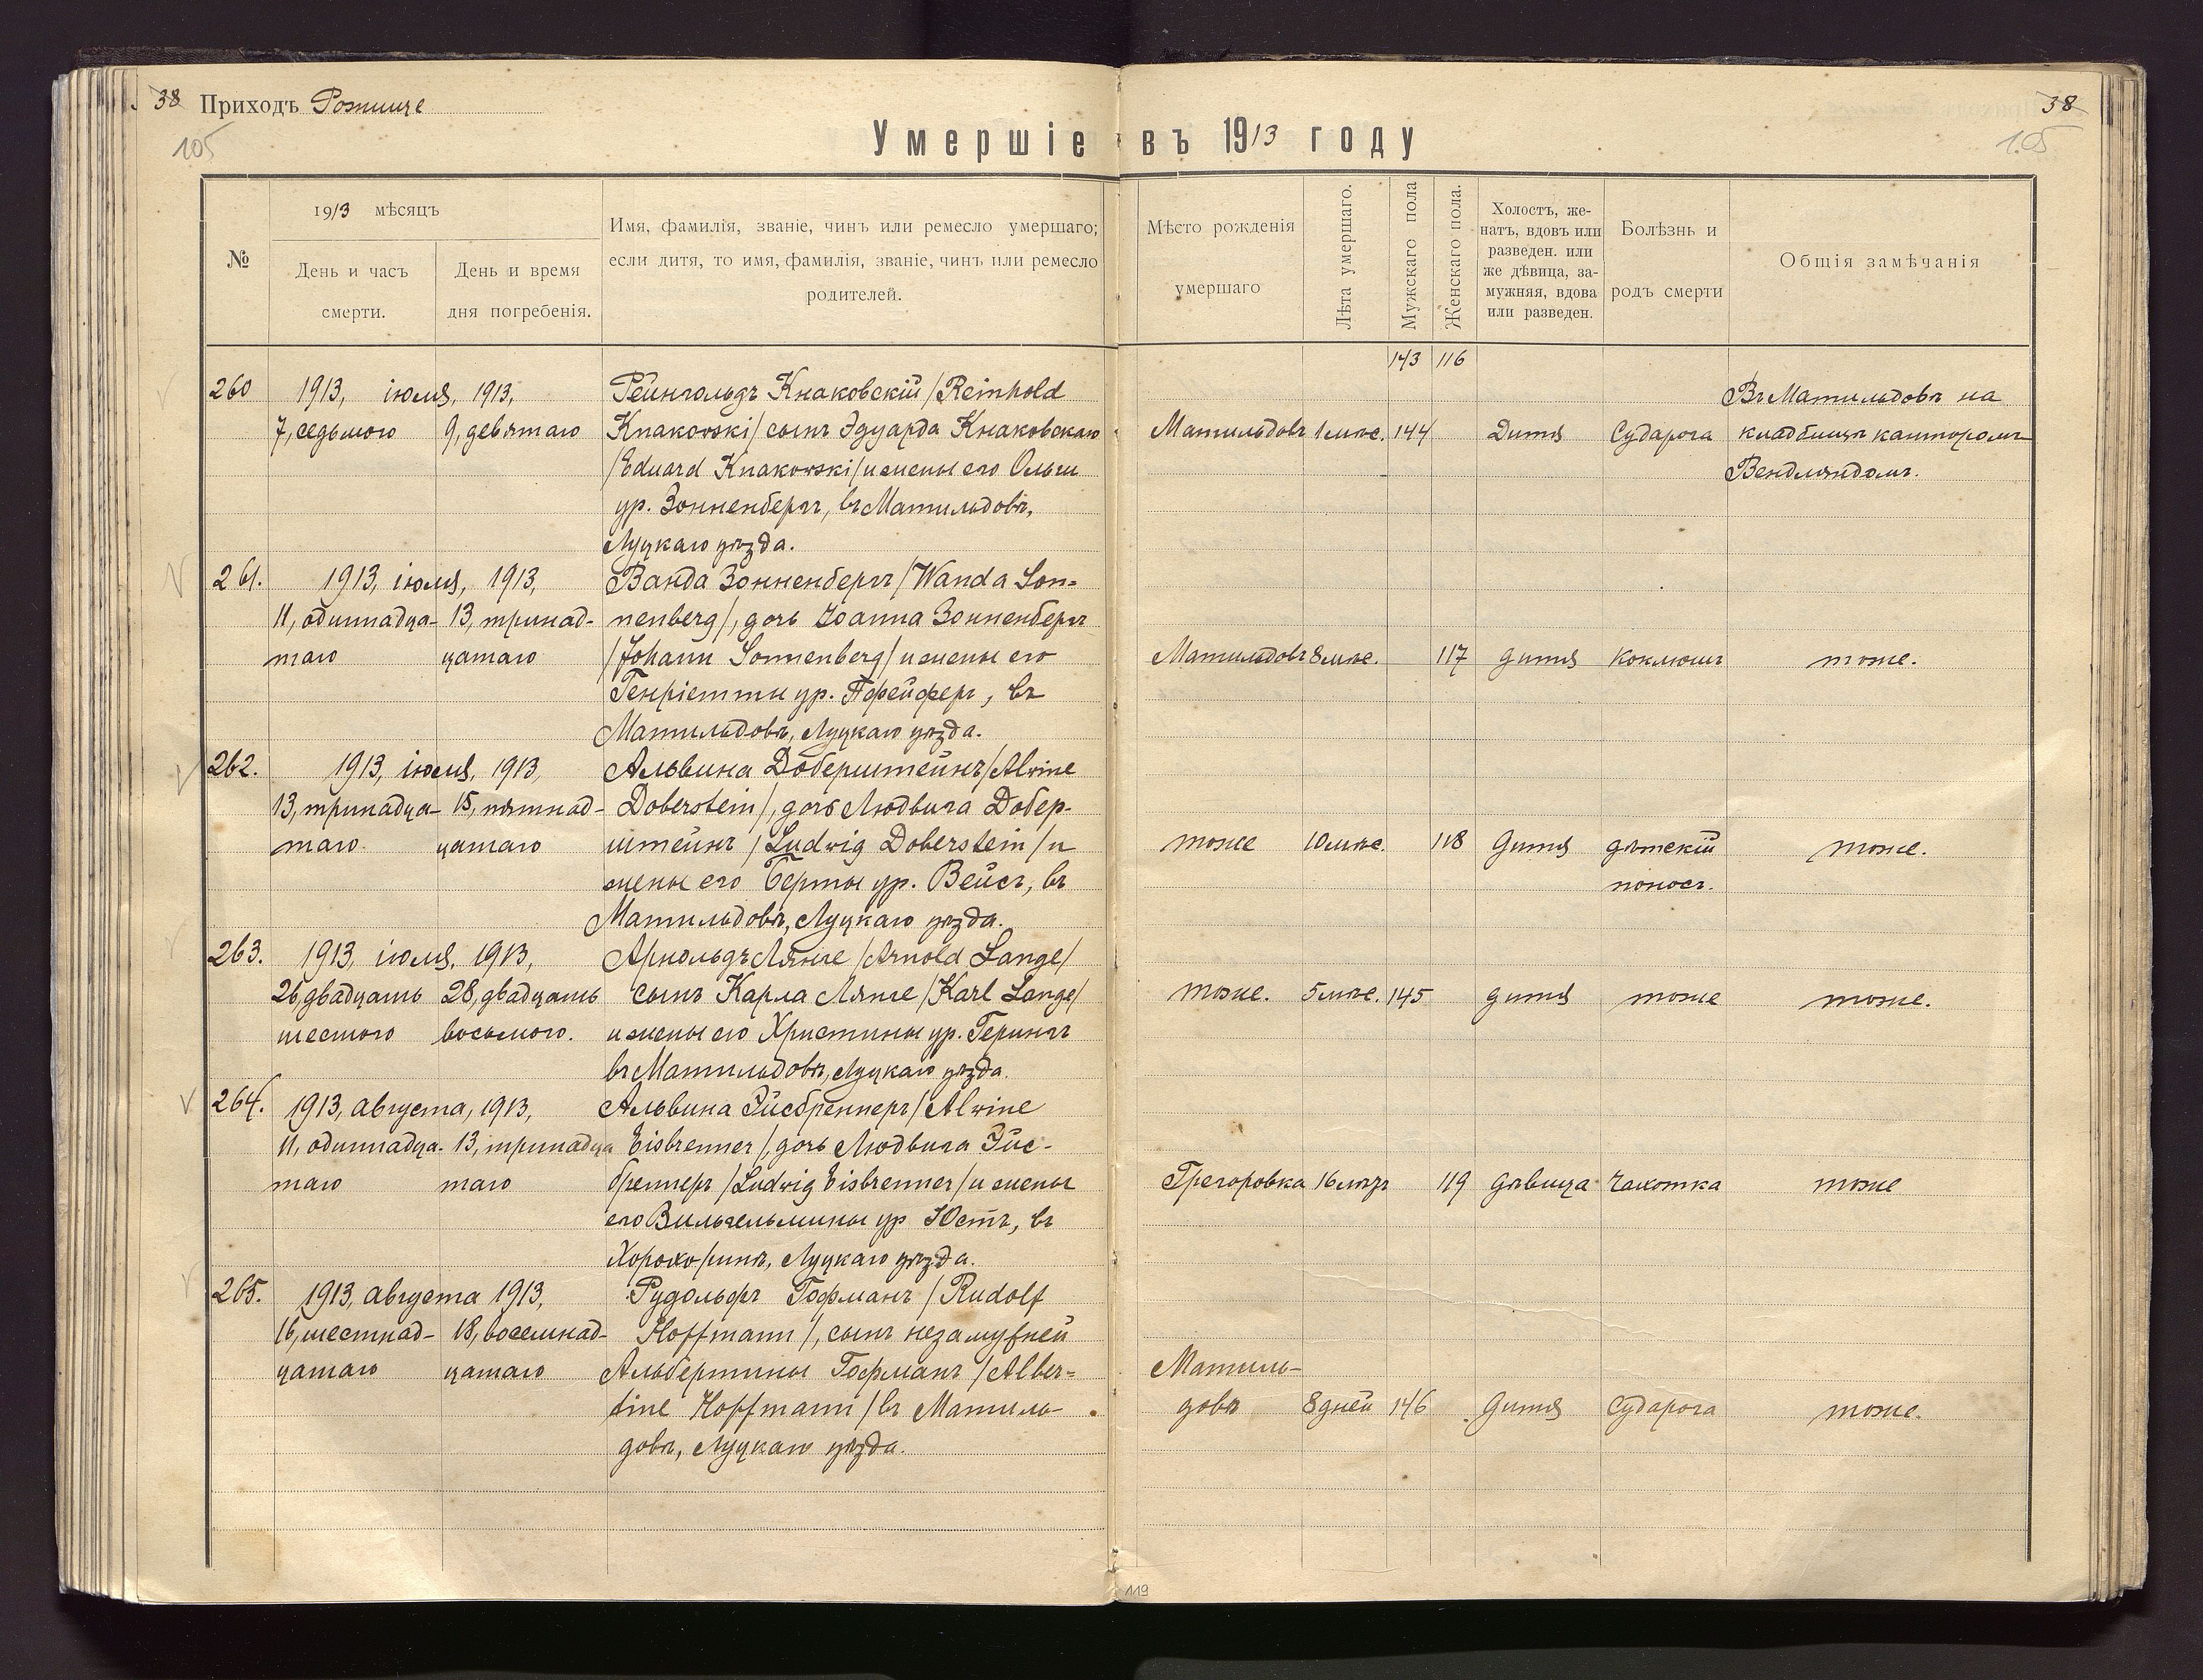 38 Приходъ Рожище
38
105
105
Умершіе въ 1913 году
№
1913 мѣсяцъ
День и часъ смерти.
День и время дня погребенія.
Имя, фамилія, званіе, чинъ или ремесло умершаго;
если дитя, то имя, фамилія, званіе, чинъ или ремесло
родителей.
Мѣсто рожденія
умершаго
Лѣта умершаго.
Мужскаго пола
Женскаго пола.
Холостъ, же-
натъ, вдовъ или
разведен. или
же дѣвица, за-
мужняя, вдова
или разведен.
Болѣзнь и
родъ смерти
Общія замѣчанія
143 116
260 1913, іюля, 1913, Рейнгольдъ Кнаковскій /Reinhold Въ Матильдовѣ на
7, седьмого 9, девятаго Knakowski/ сынъ Эдуарда Кнаковскаго Матильдовѣ 1 мѣс. 144 Дитя Судорога кладбищѣ канторомъ
/Eduard Knakowski/ и жены его Ольги Вендляндомъ.
ур. Зонненбергъ, въ Матильдовѣ,
Луцкаго уѣзда.
261. 1913, іюля, 1913, Ванда Зонненбергъ /Wanda Son=
11, одиннадца- 13, тринад- nenberg/, дочь Іоанна Зонненбергъ
таго цатаго /Johann Sonnenberg/ и жены его Матильдовѣ 8 мѣс. 117 дитя коклюшъ тоже.
Генріетты ур. Пфейферъ, въ
Матильдовѣ, Луцкаго уѣзда.
262. 1913, іюля, 1913, Альвина Доберштейнъ /Alvine
13, тринадца- 15, пятнад- Doberstein/, дочь Людвига Добер-
таго цатаго штейнъ /Ludwig Doberstein/ и тоже 10 мѣс. 118 дитя дѣтскій тоже.
жены его Берты ур. Вейсъ, въ поносъ.
Матильдовѣ, Луцкаго уѣзда.
263. 1913, іюля, 1913, Арнольдъ Лянге /Arnold Lange/
26, двадцать 28, двадцать сынъ Карла Лянге /Karl Lange/ тоже. 5 мѣс. 145 дитя тоже тоже.
шестого восьмого. и жены его Христины ур. Герингъ
въ Матильдовѣ, Луцкаго уѣзда.
264. 1913, августа, 1913, Альвина Эйсбреннеръ /Alwine
11, одиннадца- 13, тринадца Eisbrenner/, дочь Людвига Эйс-
таго таго бреннеръ /Ludwig Eisbrenner/ и жены Грегоровка 16 лѣтъ 119 дѣвица Чахотка тоже
его Вильгельмины ур Юстъ, въ
Хорохоринѣ, Луцкаго уѣзда.
265. 1913, августа 1913, Рудольфъ Гофманъ /Rudolf
16, шестнад- 18, восемнад- Hoffmann/, сынъ незамужней
цатаго цатаго Альбертины Гофманъ /Alber= Матиль-
tine Hoffmann/ въ Матиль- довѣ 8 дней 146 дитя Судорога тоже.
довѣ, Луцкаго уѣзда.
119